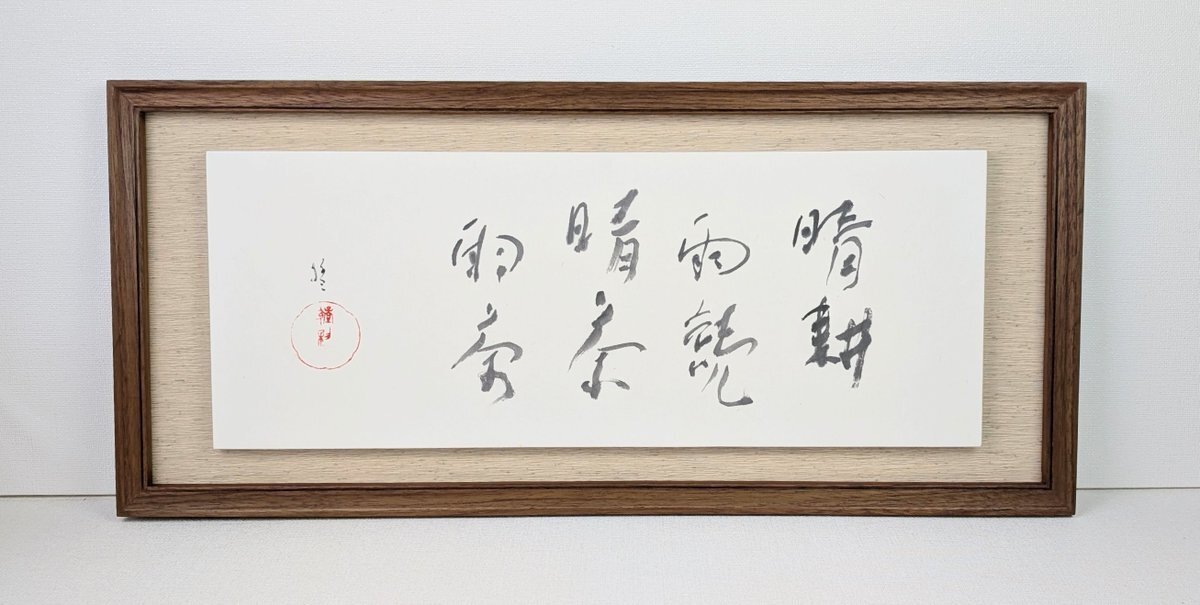 晴耕
雨読
晴茶
雨茶